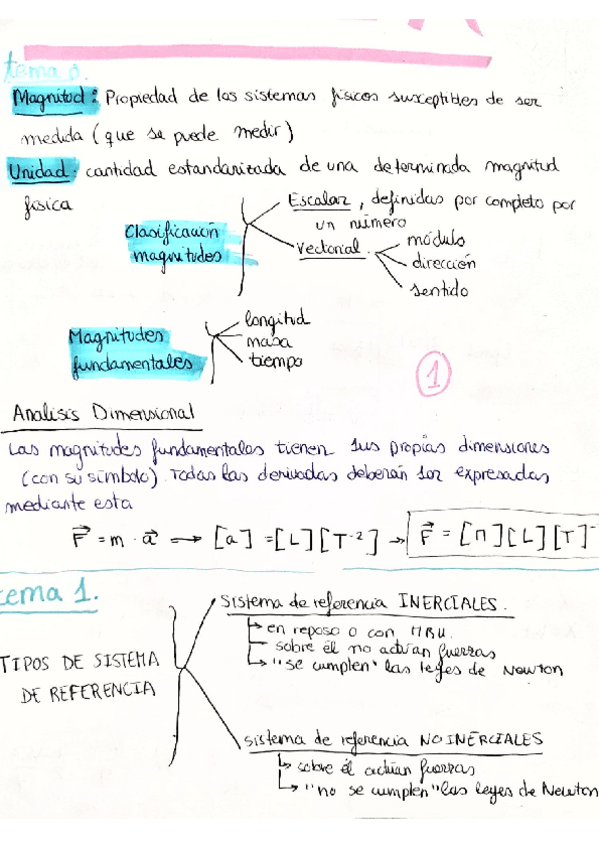 tema 0.
Magnitud: Propiedad de los sistemas físicos susceptibles de ser
medida (que se puede medir)
Unidad: cantidad estandarizada de una determinada magnitud
física
Clasificación
magnitudes
Escalar, definidas por completo por
un número
vectorial
módulo
dirección
sentido
Magnitudes
fundamentales
longitud
masa
tiempo
1
Analisis Dimensional
Las magnitudes fundamentales tienen sus propias dimensiones
(con su símbolo). Todas las derivadas deberán ser expresadas
mediante esta
F⃗ = m · a⃗ → [a] = [L][T⁻²] → F⃗ = [M][L][T]⁻
tema 1.
TIPOS DE SISTEMA
DE REFERENCIA
sistema de referencia INERCIALES.
↳ en reposo o con MRU.
sobre él no actúan fuerzas
↳ "se cumplen" las leyes de Newton
sistema de referencia NO INERCIALES
↳ sobre él actúan fuerzas
↳ "no se cumplen" las leyes de Newton